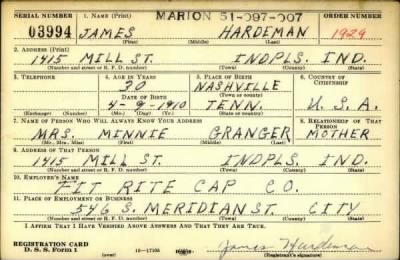 SERIAL NUMBER 1. NAME (Print) MARION 51-097-007 ORDER NUMBER
03994 JAMES HARDEMAN 1929
(First) (Middle) (Last)
2. ADDRESS (Print)
1415 MILL ST. INDPLS. IND.
(Number and street or R. F. D. number) (Town) (County) (State)
3. TELEPHONE 4. AGE IN YEARS 5. PLACE OF BIRTH 6. COUNTRY OF CITIZENSHIP
30 NASHVILLE
DATE OF BIRTH (Town or county)
4-9-1910 TENN. U.S.A.
(Exchange) (Number) (Mo.) (Day) (Yr.) (State or country)
7. NAME OF PERSON WHO WILL ALWAYS KNOW YOUR ADDRESS 8. RELATIONSHIP OF THAT PERSON
MRS. MINNIE GRANGER MOTHER
(Mr., Mrs., Miss) (First) (Middle) (Last)
9. ADDRESS OF THAT PERSON
1415 MILL ST. INDPLS. IND.
(Number and street or R. F. D. number) (Town) (County) (State)
10. EMPLOYER'S NAME
FIT RITE CAP CO.
11. PLACE OF EMPLOYMENT OR BUSINESS
546 S. MERIDIAN ST. CITY
(Number and street or R. F. D. number) (Town) (County) (State)
I AFFIRM THAT I HAVE VERIFIED ABOVE ANSWERS AND THAT THEY ARE TRUE.
REGISTRATION CARD
D. S. S. Form 1 (over) 16—17105 James Hardeman
(Registrant's signature)